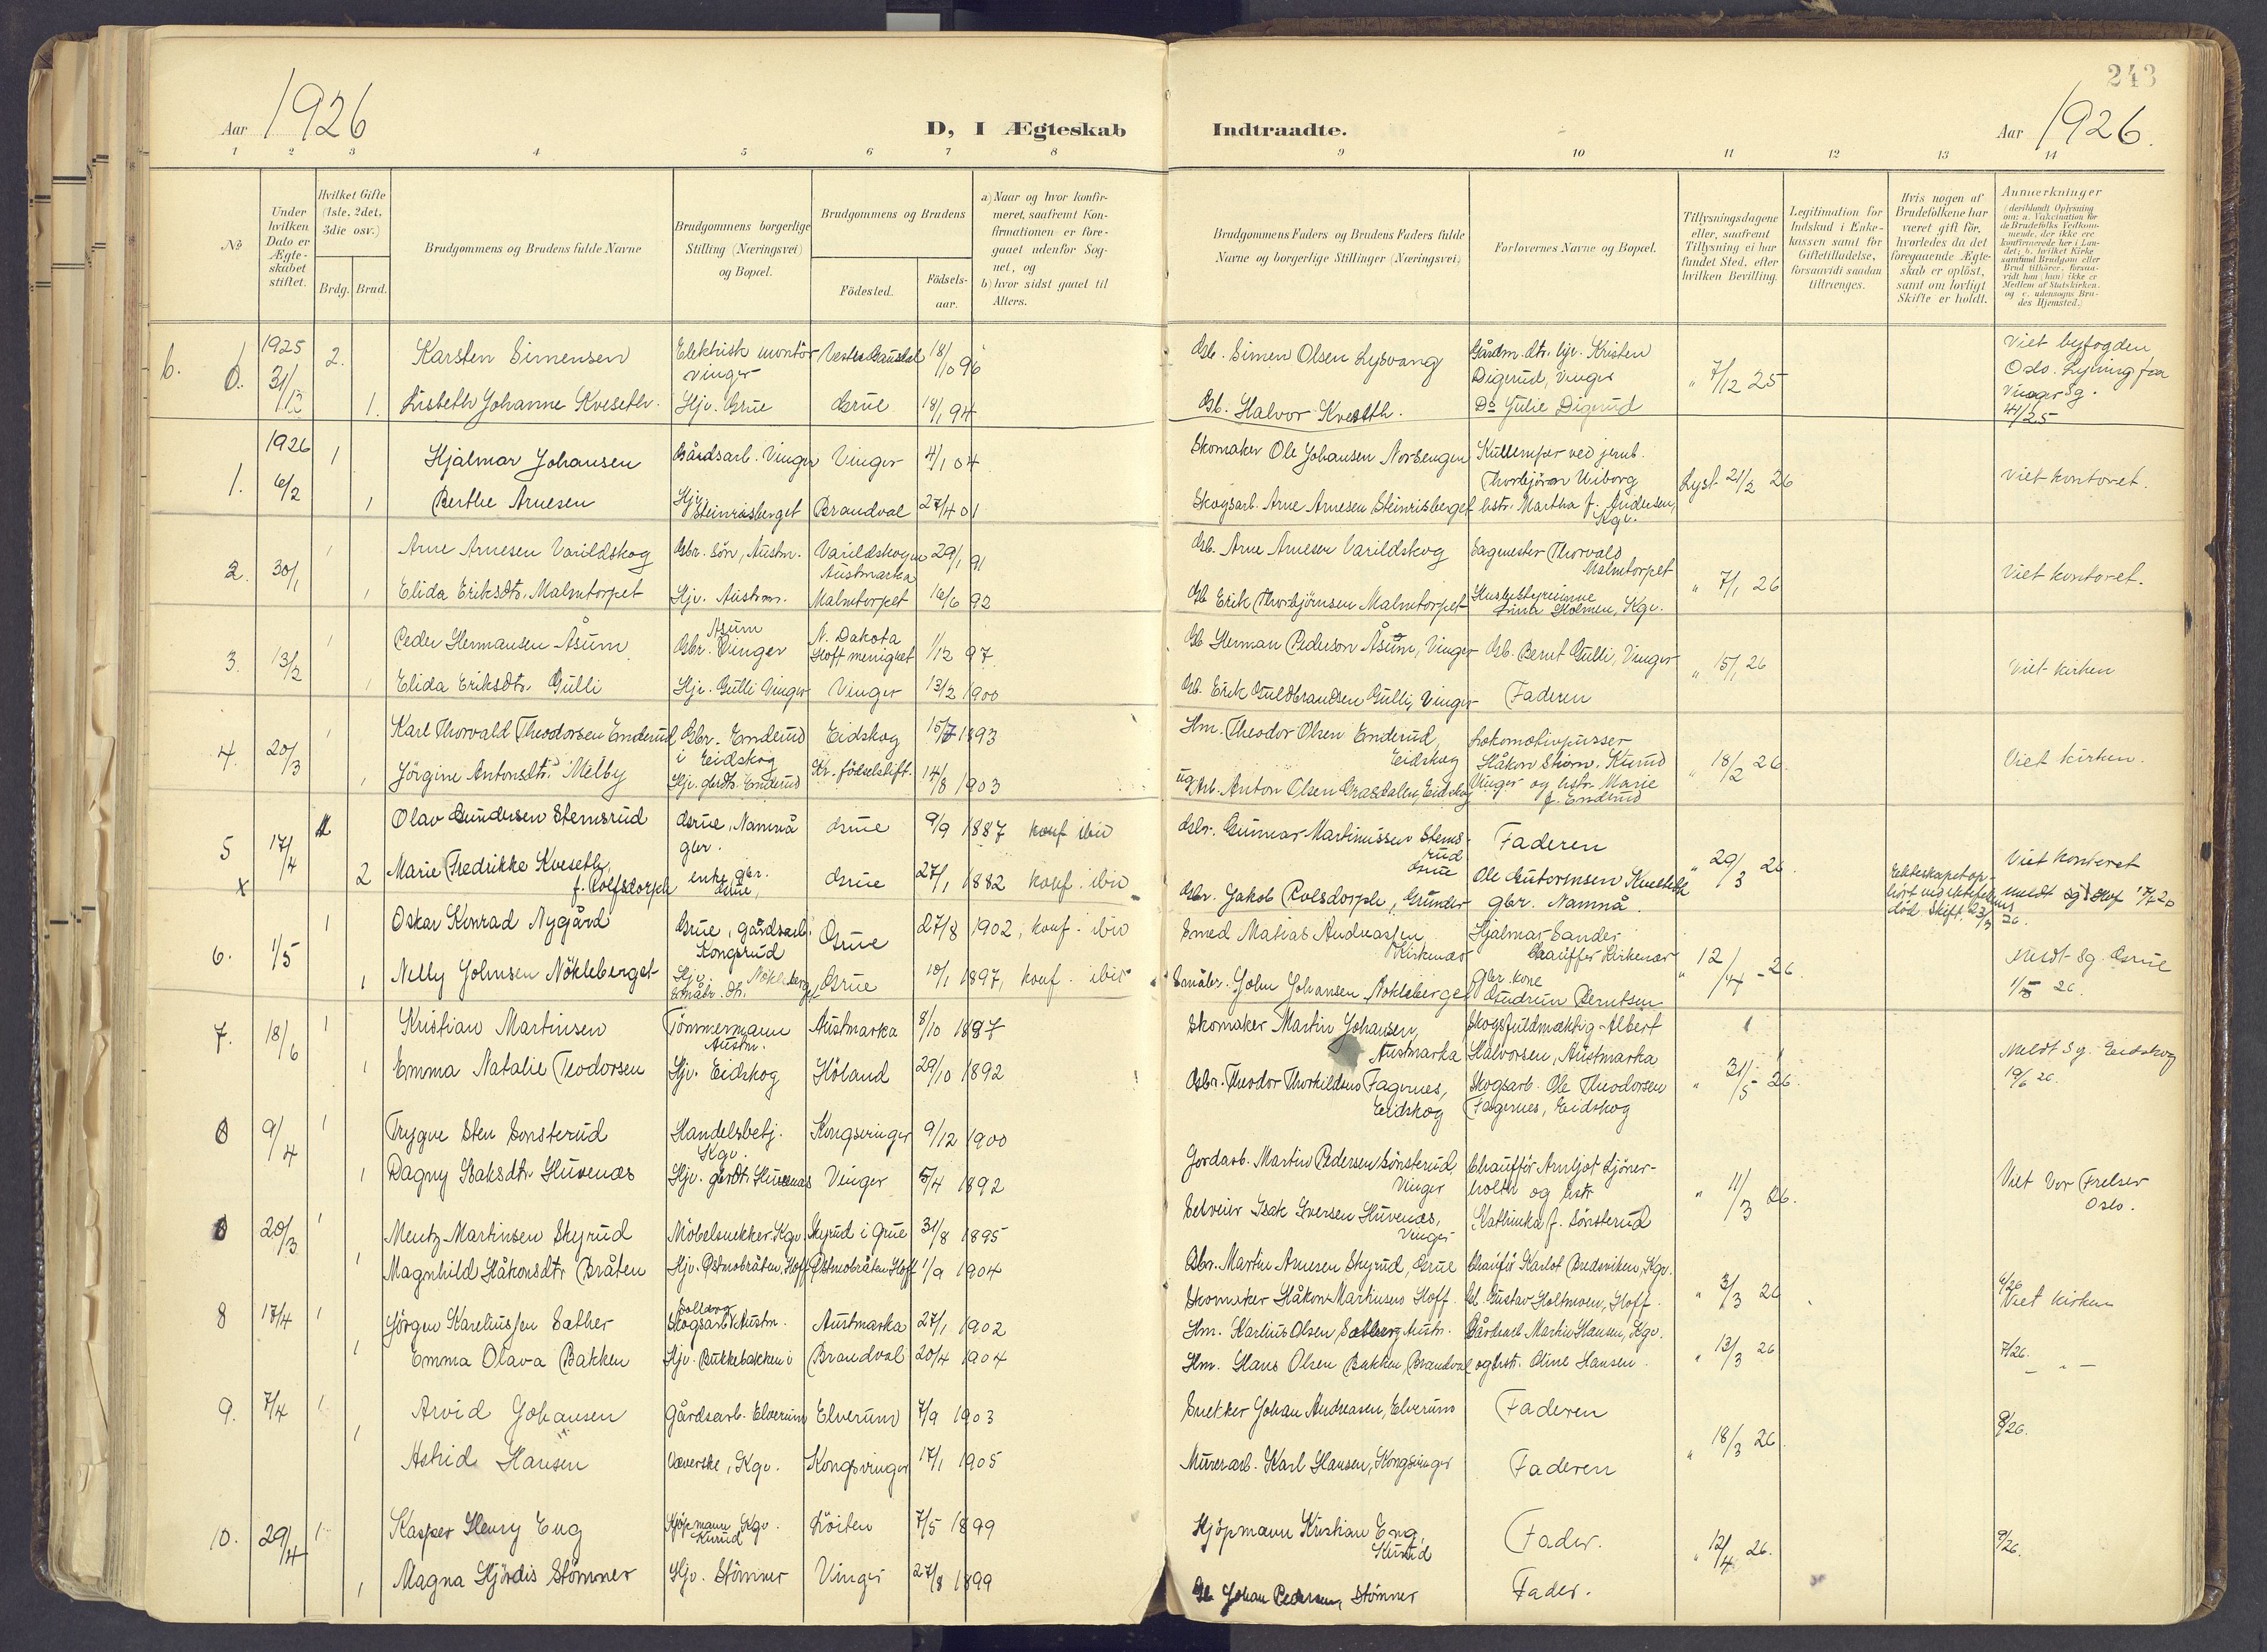 243
Aar 1926
D, I Ægteskab
Indtraadte.
Aar 1926.
1 2 3 4 5 6 7 8 9 10 11 12 13 14
No
Under hvilken Dato er Ægteskabet stiftet.
Hvilket Gifte (1ste, 2det, 3die osv.)
Brdg. Brud.
Brudgommens og Brudens fulde Navne
Brudgommens borgerlige Stilling (Næringsvei) og Bopæl.
Brudgommens og Brudens
Födested.
Födsels-aar.
a) Naar og hvor konfir-
meret, saafremt Kon-
firmationen er fore-
gaaet udenfor Sog-
net, og
b) hvor sidst gaaet til
Alters.
Brudgommens Faders og Brudens Faders fulde
Navne og borgerlige Stillinger (Næringsvei)
Forlovernes Navne og Bopæl.
Tillysningsdagene
eller, saafremt
Tillysning ei har
fundet Sted, efter
hvilken Bevilling.
Legitimation for
Indskud i Enke-
kassen samt for
Giftetilladelse,
forsaavidt saadan
tiltrænges.
Hvis nogen af
Brudefolkene har
været gift før,
hvorledes da det
foregaaende Ægte-
skab er oplöst,
samt om lovligt
Skifte er holdt.
Anmerkninger
(deriblandt Oplysning
om: a. Vaksination for
de Brudefolks Vedkom-
mende, der ikke ere
konfirmerede her i Lan-
det; b. hvilket Kirke
samfund Brudgom eller
Brud tilhører, forsaa-
vidt han (hun) ikke er
Medlem af Statskirken.
og c. udensogns Bru-
des Hjemsted.)
6. 1925 31/12 2. Karsten Simensen Elektrisk montör Vinger 18/10 96 Gb. Simen Olsen Lysvang Gårdm. dtr. hjv. Kristen Digerud, Vinger " 7/12 25 Viet byfogden Oslo. Lysning fra Vinger Sg. 44/25
1. Lisbeth Johanne Kveseth. Hjv. Grue Grue 18/1 94 Gb. Halvor Kveseth. Do Julie Digerud
1. 1926 6/2 1 Hjalmar Johansen Gårdsarb. Vinger Vinger 4/1 04 Skomaker Ole Johansen Norsengen Kullemper ved jernb. Thorbjörn Viborg Lyst 21/2 26 Viet kontoret.
1 Berthe Arnesen Hjv. Steinrisberget Brandval 27/4 01 Skogsarb. Arne Arnesen Steinrisberget hstr. Martha f. Andersen, Kgv.
2. 30/1 1 Arne Arnesen Varildskog Gbr. sön, Austm. Varildskogen Austmarka 29/1 91 Gb. Arne Arnesen Varildskog Sagmester Thorvald Malmtorpet " 7/1 26 Viet kontoret.
1 Elida Eriksdtr. Malmtorpet Hjv. Austm. Malmtorpet 16/6 92 Gb Erik Thorbjörnsen Malmtorpet Husbestyrerinne Holmen, Kgv.
3. 13/2 1 Peder Hermansen Åsum Åsum Gbr. Vinger N. Dakota Hoff menighet 1/12 97 Gb Herman Pederson Åsum, Vinger Gb. Bernt Gulli, Vinger " 15/1 26 Viet kirken
1 Elida Eriksdtr. Gulli Hjv. Gulli Vinger Vinger 13/2 1900 Gb. Erik Guldbrandsen Gulli, Vinger Faderen
4. 20/3 1 Karl Thorvald Theodorsen Enderud Gbr. Enderud i Eidskog Eidskog 15/7 1893 Hm. Theodor Olsen Enderud, Eidskog Lokomotivpusser Håkon Kurud Vinger og hstr. Marie f. Enderud " 18/2 26 Viet kirken.
1 Jörgine Antonsdtr. Melby Hjv. gårdt. Enderud Kr. födselstift. 14/8 1903 Arb. Anton Olsen Grasdalen, Eidskog
5 x 17/4 Olav Gundersen Stemsrud Grue, Namnå gbr. Grue 9/9 1887 konf ibid Gbr. Gunnar Martinussen Stemsrud Grue Faderen " 29/3 26 Viet kontoret
2 Marie Fredrikke Kveseth, f. Rolfsdorph enke, gbr. Grue, Grue 27/1 1882 konf. ibid Gbr. Jakob Rolsdorph, Gründer Ole Gutormsen Kveseth gbr. Namnå. Ekteskapet op-hört ved ektefellens död Skift. 23/3 26. meldt sg
6. 1/5 1 Oskar Konrad Nygård Grue, gårdsarb. Kongsrud Grue 27/8 1902, konf. ibid Smed Matias Andreassen Kirkenær Hjalmar Sander Chauffør Kirkenær " 12/4 26 meldt Sg. Grue
1 Nelly Johnsen Nökleberget Hjv. Nökleberget Småbr. dtr. Grue 10/1 1897, konf. ibid Småbr. John Johansen Nökleberget gbr. kone Gudrun Berntsen
7. 18/6 1 Kristian Martinsen Tömmermann Austm. Austmarka 8/10 1897 Skomaker Martin Johansen, Austmarka Skogsfuldmæktig Albert Halvorsen, Austmarka " 31/5 26. meldt Sg. Eidskog 19/6 26.
1 Emma Natalie Teodorsen Hjv. Eidskog Höland 29/10 1892 Gbr. Theodor Thorkildsen Fagernes, Eidskog Skogsarb. Ole Theodorsen Fagernes, Eidskog
0 9/4 1 Trygve Sten Sönsterud Handelsbetj. Kgv. Kongsvinger 9/12 1900 Jordarb. Martin Pedersen Sönsterud, Vinger Chaufför Arnljot Ljöner-holth og hstr. Kathinka f. Sönsterud " 11/3 26. Viet Vor Frelser Oslo.
1 Dagny Isaksdtr. Huvenæs Hjv. gårdt. Huvenæs Vinger 5/4 1892 Selveier Isak Iversen Huvenæs, Vinger
0 20/3 1 Mentz Martinsen Skyrud Möbelsnekker, Kgv. Skyrud i Grue 31/8 1895 Gbr. Martin Arnesen Skyrud, Grue Chauffør Karlot Bredviken, Kgv. " 3/3 26
1 Magnhild Håkonsdtr Bråten Hjv. Østmobråten, Hoff Østmobråten Hoff 1/9 1904 Skomaker Håkon Martinsen Hoff. Gb. Gustav Holtmoen, Hoff. Viet kirken
8 17/4 1 Jörgen Kareliussen Sæther Skogsarb Austm. Austmarka 27/1 1902 Hm. Karlius Olsen Austm. Gårdsarb Martin Hansen, Kgv. " 13/3 26 7/26.
1 Emma Olava Bakken Hjv. Bukkebakken i Brandval 20/4 1904 Hm. Hans Olsen Bakken, Brandval og hstr. Oline Hansen.
9. 7/4 1 Arvid Johansen Gårdsarb. Elverum Elverum 7/9 1903 Snekker Johan Andreasen, Elverum Faderen " 18/3 26 8/26.
1 Astrid Hansen Væverske, Kgv. Kongsvinger 17/1 1905 Murerarb. Karl Hansen, Kongsvinger Faderen
10. 29/4 1 Kasper Henry Eng Kjöpmann Kgv. Kurud Löiten 7/5 1899 Kjöpmann Kristian Eng, Kurud Fader. " 12/4 26. 9/26.
1 Magna Hjördis Stömner Hjv. Stömner Vinger 27/8 1899 Gb Johan Pedersen, Stömner Fader.